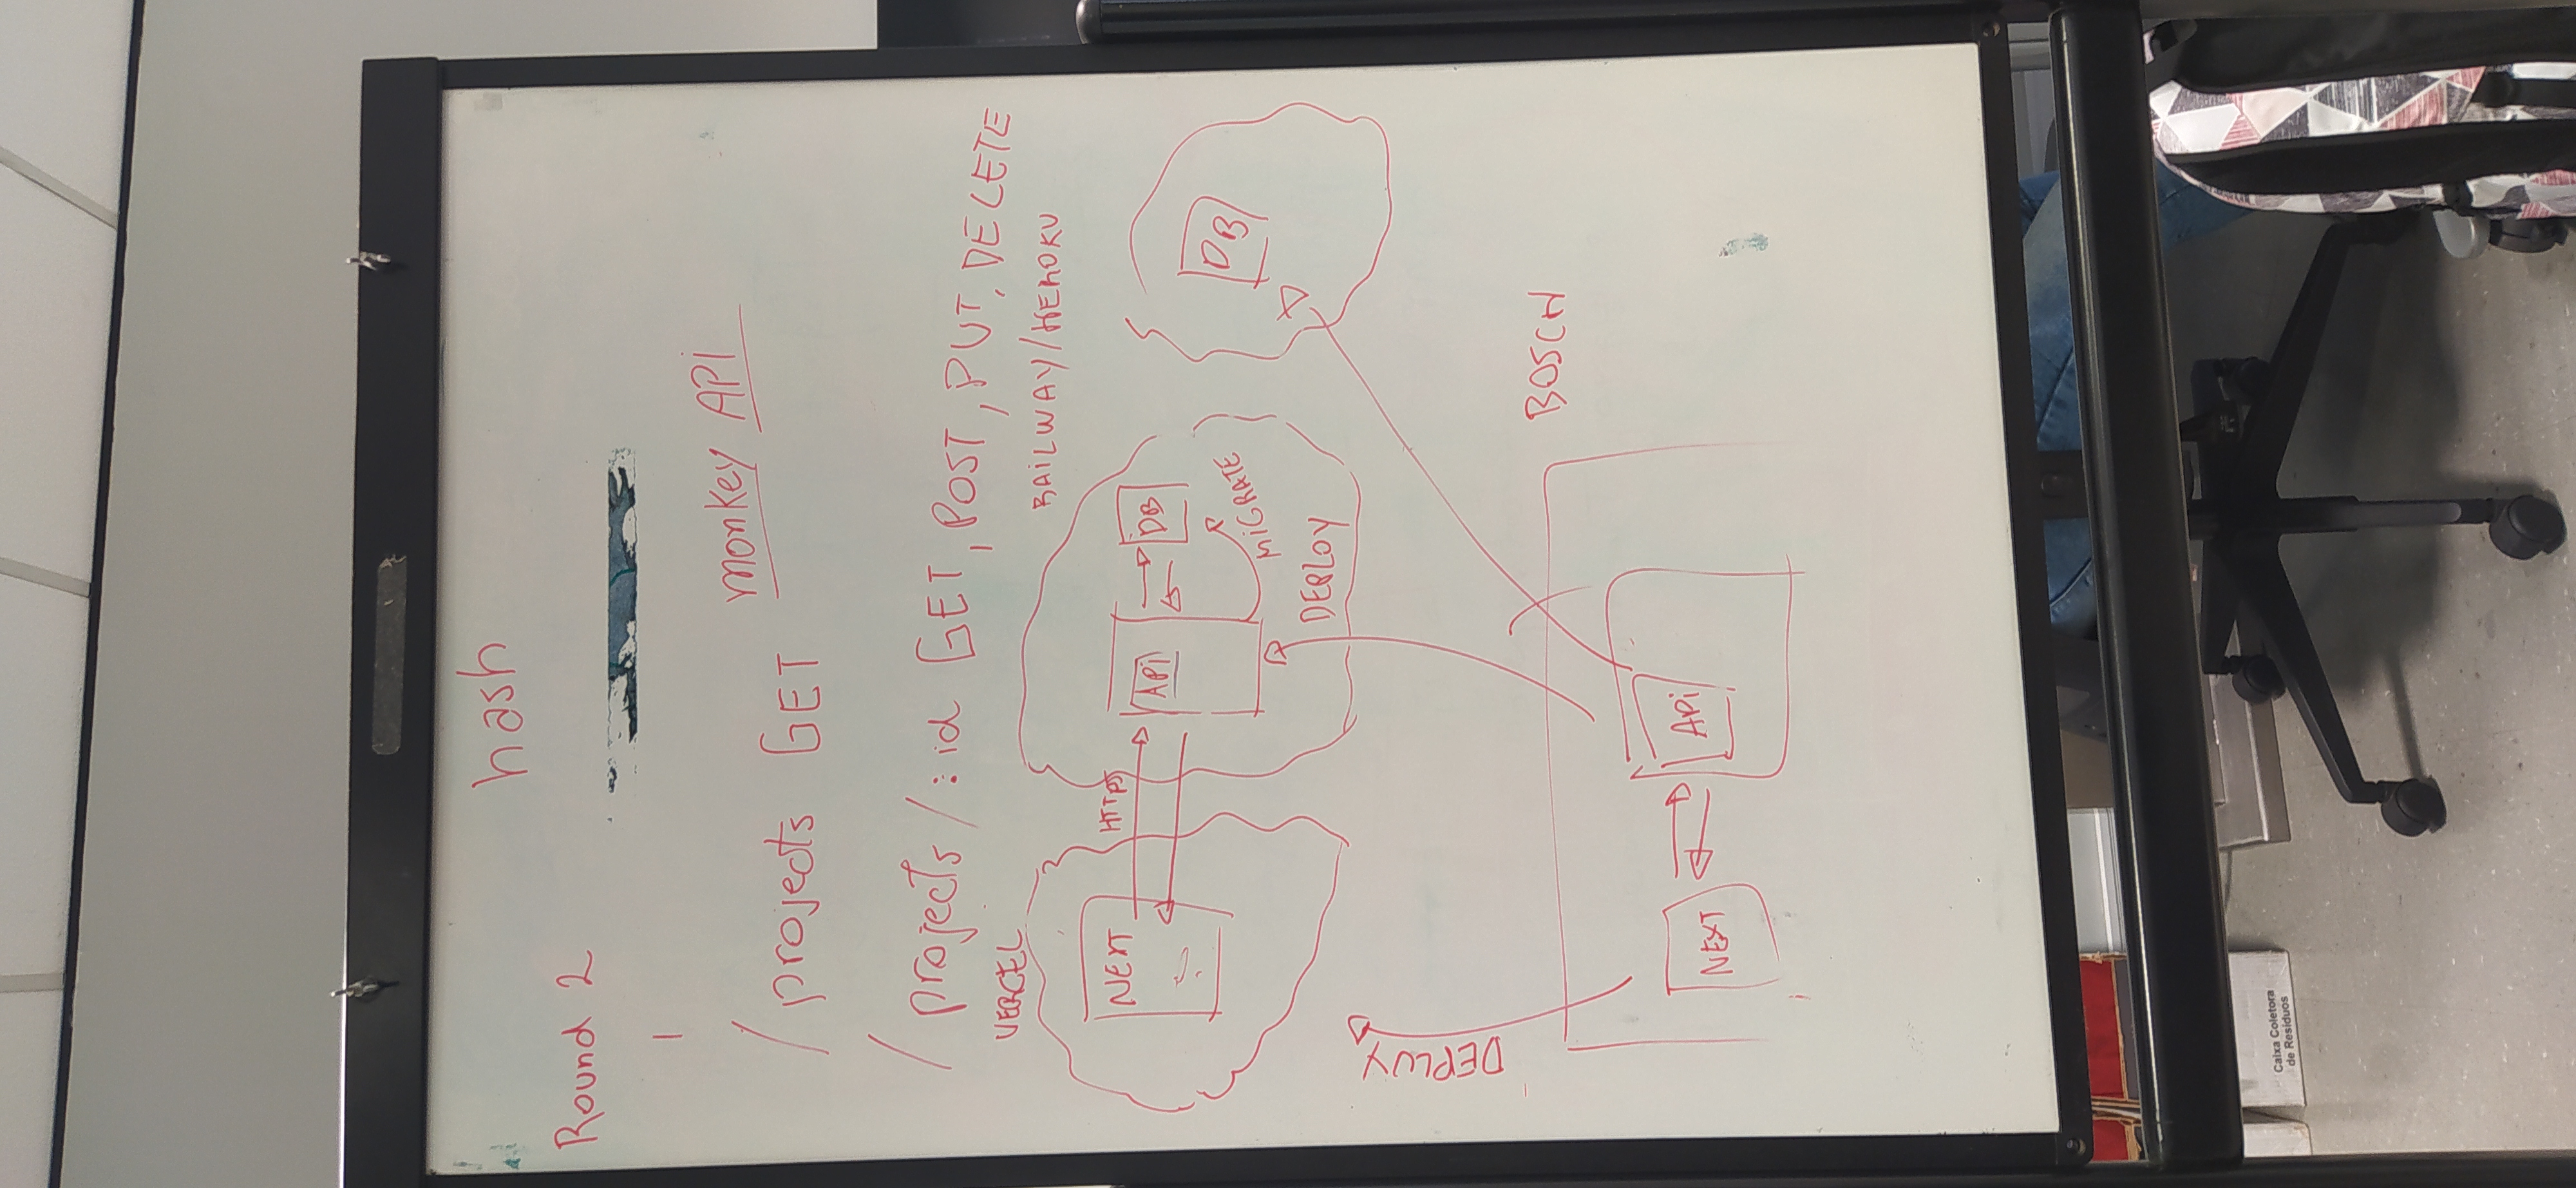 hash
Round 2
monkey API
/projects GET
/projects/:id GET, POST, PUT, DELETE
VERCEL
RAILWAY/HEROKU
NEXT
HTTPS
API
DB
DB
MIGRATE
DEPLOY
DEPLOY
BOSCH
NEXT
API
Caixa Coletora
de Resíduos